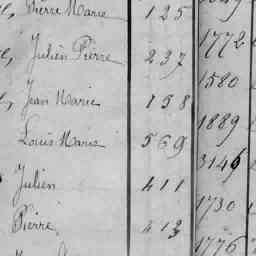 Pierre Marie 125
1772
Julien Pierre 237
1580
Jean Marie 158
1889
Louis Marie 569
3146
Julien 411
1730
Pierre 413
1776